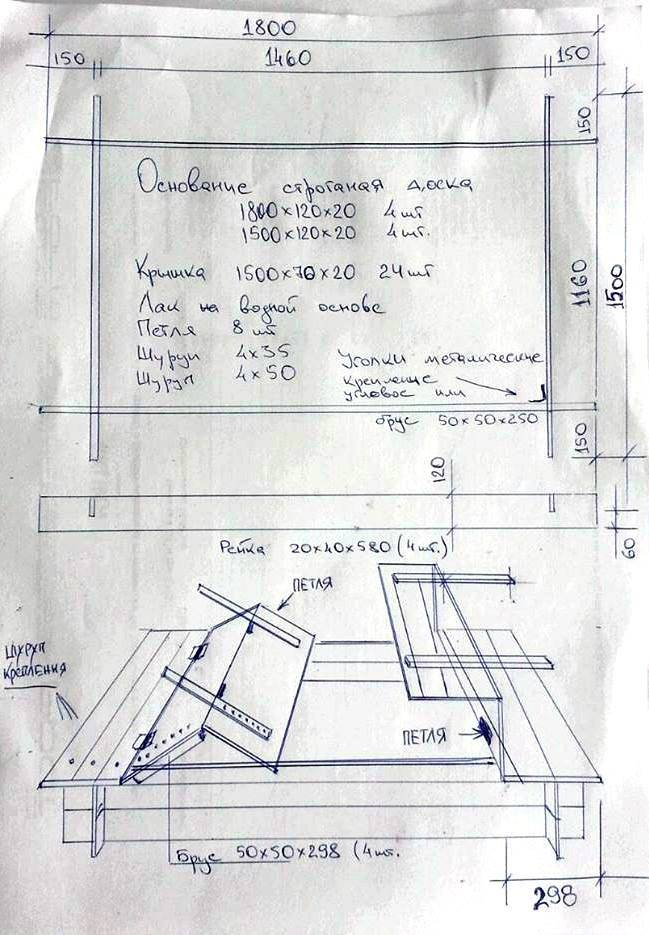 1800
150 1460 150
150
Основание строганая доска
1800×120×20 4шт
1500×120×20 4шт.
Крышка 1500×70×20 24шт
Лак на водной основе
Петля 8 шт
Шуруп 4×35
Шуруп 4×50
1160
1500
Уголки металические
крепление
угловое или
брус 50×50×250
150
120
60
Рейка 20×40×580 (4шт.)
ПЕТЛЯ
ШУРУП
КРЕПЛЕНИЯ
ПЕТЛЯ
Брус 50×50×298 (4шт.
298